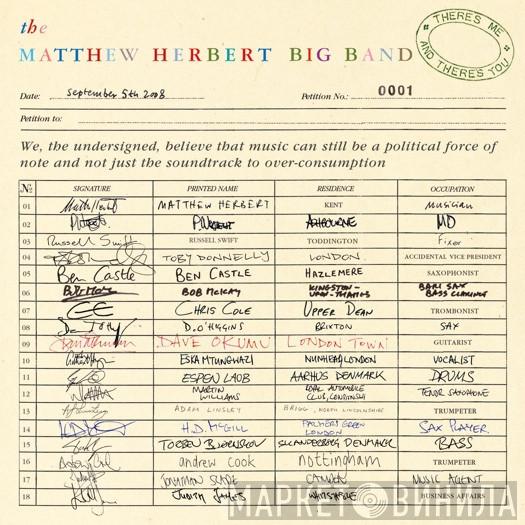 the
MATTHEW HERBERT BIG BAND
THERE'S ME
AND THERE'S YOU
Date: September 5th 2008 Petition No.: 0001
Petition to:
We, the undersigned, believe that music can still be a political force of
note and not just the soundtrack to over-consumption
No SIGNATURE PRINTED NAME RESIDENCE OCCUPATION
01 MATTHEW HERBERT KENT Musician
02 P.Wright ASHBOURNE MD
03 Russell Swift RUSSELL SWIFT TODDINGTON Fixer
04 TOBY DONNELLY LONDON. ACCIDENTAL VICE PRESIDENT
05 Ben Castle BEN CASTLE HAZLEMERE SAXOPHONIST
06 BOB MCKAY KINGSTON-UPON-THAMES BARI SAX BASS CLARINET
07 CHRIS COLE UPPER DEAN TROMBONIST
08 D.O'HIGGINS BRIXTON SAX
09 DAVE OKUMU LONDON TOWN GUITARIST
10 ESKA MTUNGWAZI NUNHEAD, LONDON VOCALIST
11 ESPEN LAUB AARHUS DENMARK DRUMS
12 MARTIN WILLIAMS TENOR SAXOPHONE
13 ADAM LINSLEY BRIGG, NORTH LINCOLNSHIRE TRUMPETER
14 H.D. McGILL PALMERS GREEN LONDON SAX PLAYER
15 TORBEN BJØRNSKOV SKANDERBORG DENMARK BASS
16 andrew cook nottingham TRUMPETER
17 JONATHAN SLADE CAMDEN MUSIC AGENT
18 JUDITH JAMES WHITSTABLE BUSINESS AFFAIRS
МАРКЕТ ВИНИЛА